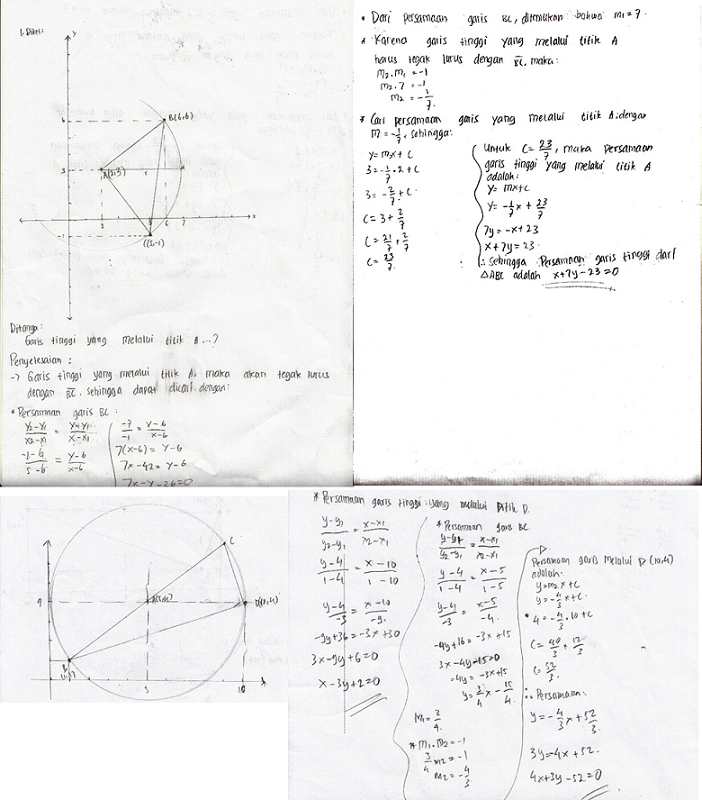 1. Diket:
y
6
B(6,6)
3
A(2,3)
2
5
6
7
x
-1
C(5,-1)
Ditanya:
Garis tinggi yang melalui titik A ...?
Penyelesaian :
-> Garis tinggi yang melalui titik A, maka akan tegak lurus
dengan BC, sehingga dapat dicari dengan:
* Persamaan garis BC :
y2-y1/x2-x1 = y-y1/x-x1
-1-6/5-6 = y-6/x-6
-7/-1 = y-6/x-6
7(x-6) = y-6
7x-42 = y-6
7x-y-36=0
* Dari persamaan garis BC, ditentukan bahwa m1=7.
* Karena garis tinggi yang melalui titik A
harus tegak lurus dengan BC, maka:
m2.m1 = -1
m2.7 = -1
m2 = -1/7.
* Cari persamaan garis yang melalui titik A, dengan
m = -1/7, sehingga:
y = mx + c
3 = -1/7.2 + c
3 = -2/7 + c
c = 3 + 2/7
c = 21/7 + 2/7
c = 23/7.
Untuk c = 23/7, maka persamaan
garis tinggi yang melalui titik A
adalah:
y = mx+c
y = -1/7x + 23/7
7y = -x + 23
x+7y = 23.
∴ Sehingga Persamaan garis tinggi dari
△ABC adalah x+7y-23=0
C
4
A(5,4)
D(10,4)
B
(1,1)
5
10
x
* Persamaan garis tinggi yang melalui titik D.
y-y1/y2-y1 = x-x1/x2-x1
y-4/1-4 = x-10/1-10
y-4/-3 = x-10/-9
-9y+36 = -3x+30
3x-9y+6=0
x-3y+2=0
* Persamaan garis BC
y-y1/y2-y1 = x-x1/x2-x1
y-4/1-4 = x-5/1-5
y-4/-3 = x-5/-4.
-4y+16 = -3x+15
-4y = -3x+15
y = 3/4x - 15/4.
m1 = 3/4.
* m1.m2 = -1
3/4 m2 = -1
m2 = -4/3
Persamaan garis melalui D (10,4)
adalah:
y=m2x+c
y = -4/3x+c.
* 4 = -4/3.10+c
c = 40/3 + 12/3
c = 52/3.
∴ Persamaan:
y = -4/3x + 52/3.
3y = -4x + 52.
4x+3y-52=0